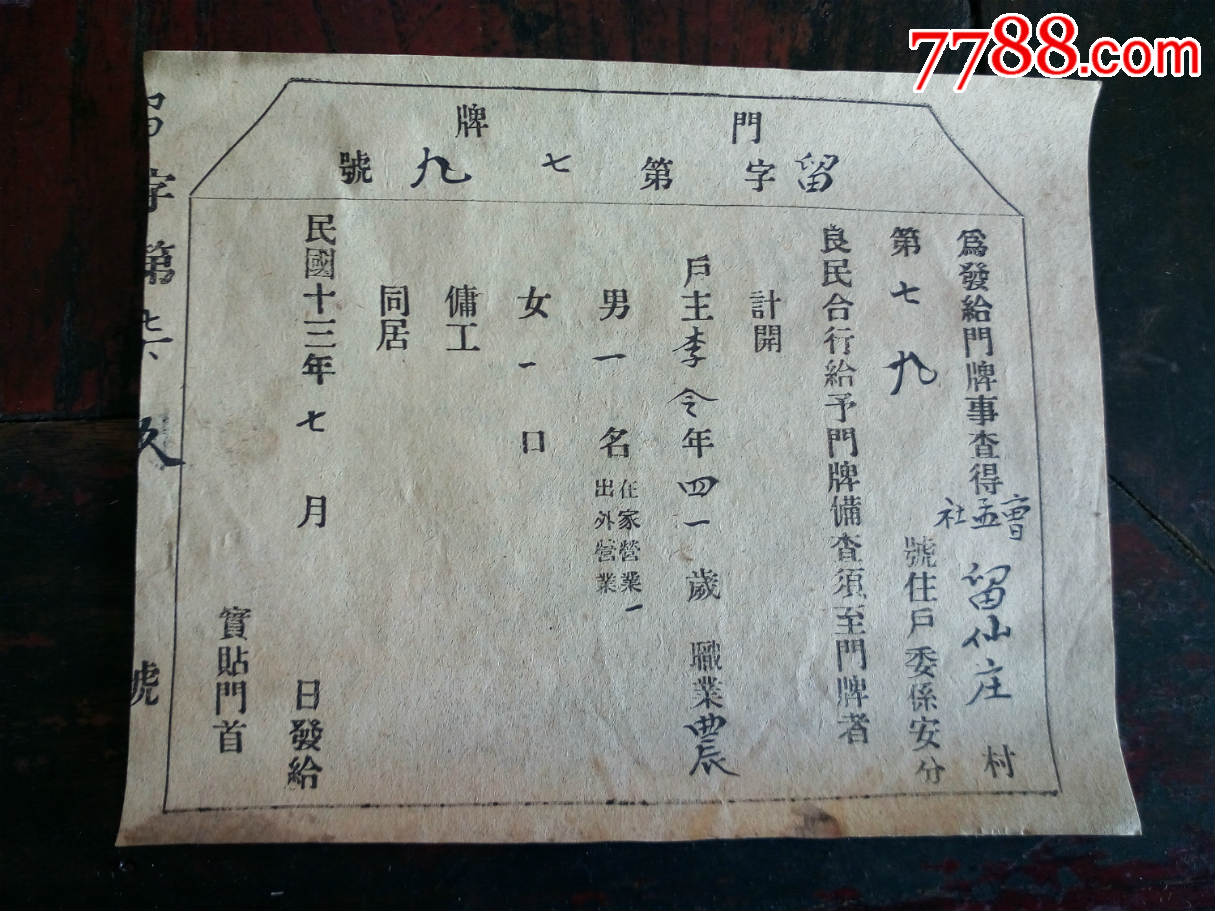 7788.com
門牌
留字第七九號
為發給門牌事查得曹孟社留仙庄村
第七九號住戶委係安分
良民合行給予門牌備查須至門牌者
計開
戶主李令年四一歲 職業農
男一名在家營業一
出外營業
女一口
傭工
同居
民國十三年七月 日發給
實貼門首
留字第七 玖號